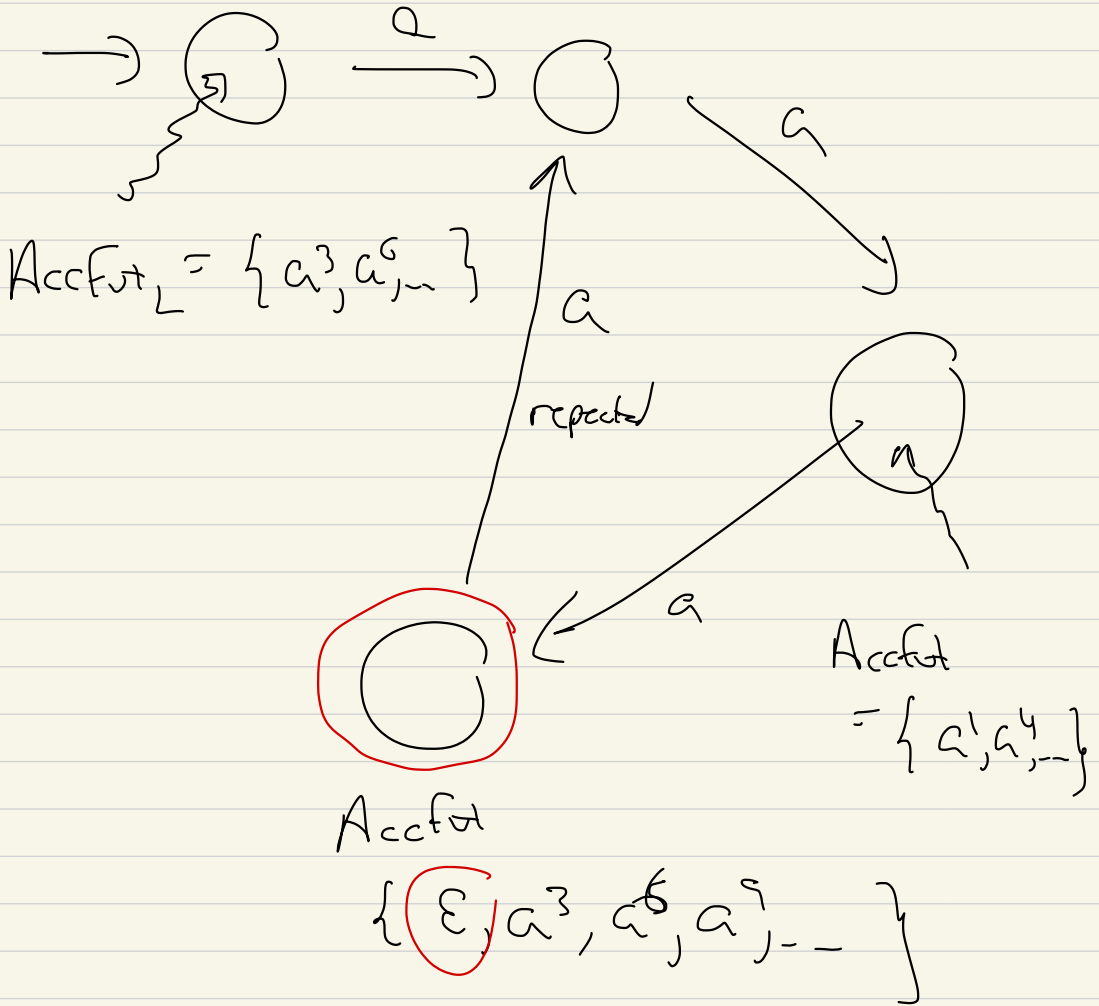 a
a
AccFut_L = {a³, a⁶, ...}
a
repeated
a
AccFut
= {a¹, a⁴, ...}
AccFut
{ε, a³, a⁶, a⁹, ...}